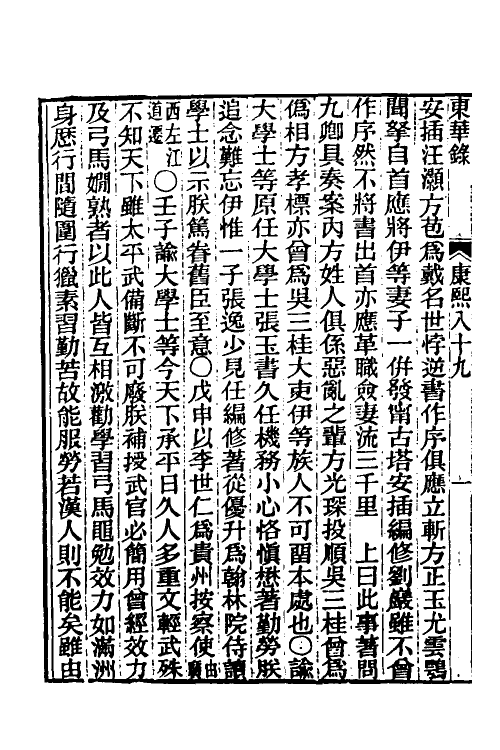 東華錄　康熙八十九　一
安插汪灝方苞爲戴名世悖逆書作序俱應立斬方正玉尤雲鶚
聞拏自首應將伊等妻子一併發甯古塔安插編修劉巖雖不曾
作序然不將書出首亦應革職僉妻流三千里　上曰此事著問
九卿具奏案內方姓人俱係惡亂之輩方光琛投順吳三桂曾爲
僞相方孝標亦曾爲吳三桂大吏伊等族人不可畱本處也○諭
大學士等原任大學士張玉書久任機務小心恪愼懋著勤勞朕
追念難忘伊惟一子張逸少見任編修著從優升爲翰林院侍讀
學士以示朕篤眷舊臣至意○戊申以李世仁爲貴州按察使由廣
西左江道遷○壬子諭大學士等今天下承平日久人多重文輕武殊
不知天下雖太平武備斷不可廢朕補授武官必簡用曾經效力
及弓馬嫺熟者以此人皆互相激勸學習弓馬黽勉效力如滿洲
身歷行間隨圍行獵素習勤苦故能服勞若漢人則不能矣雖由